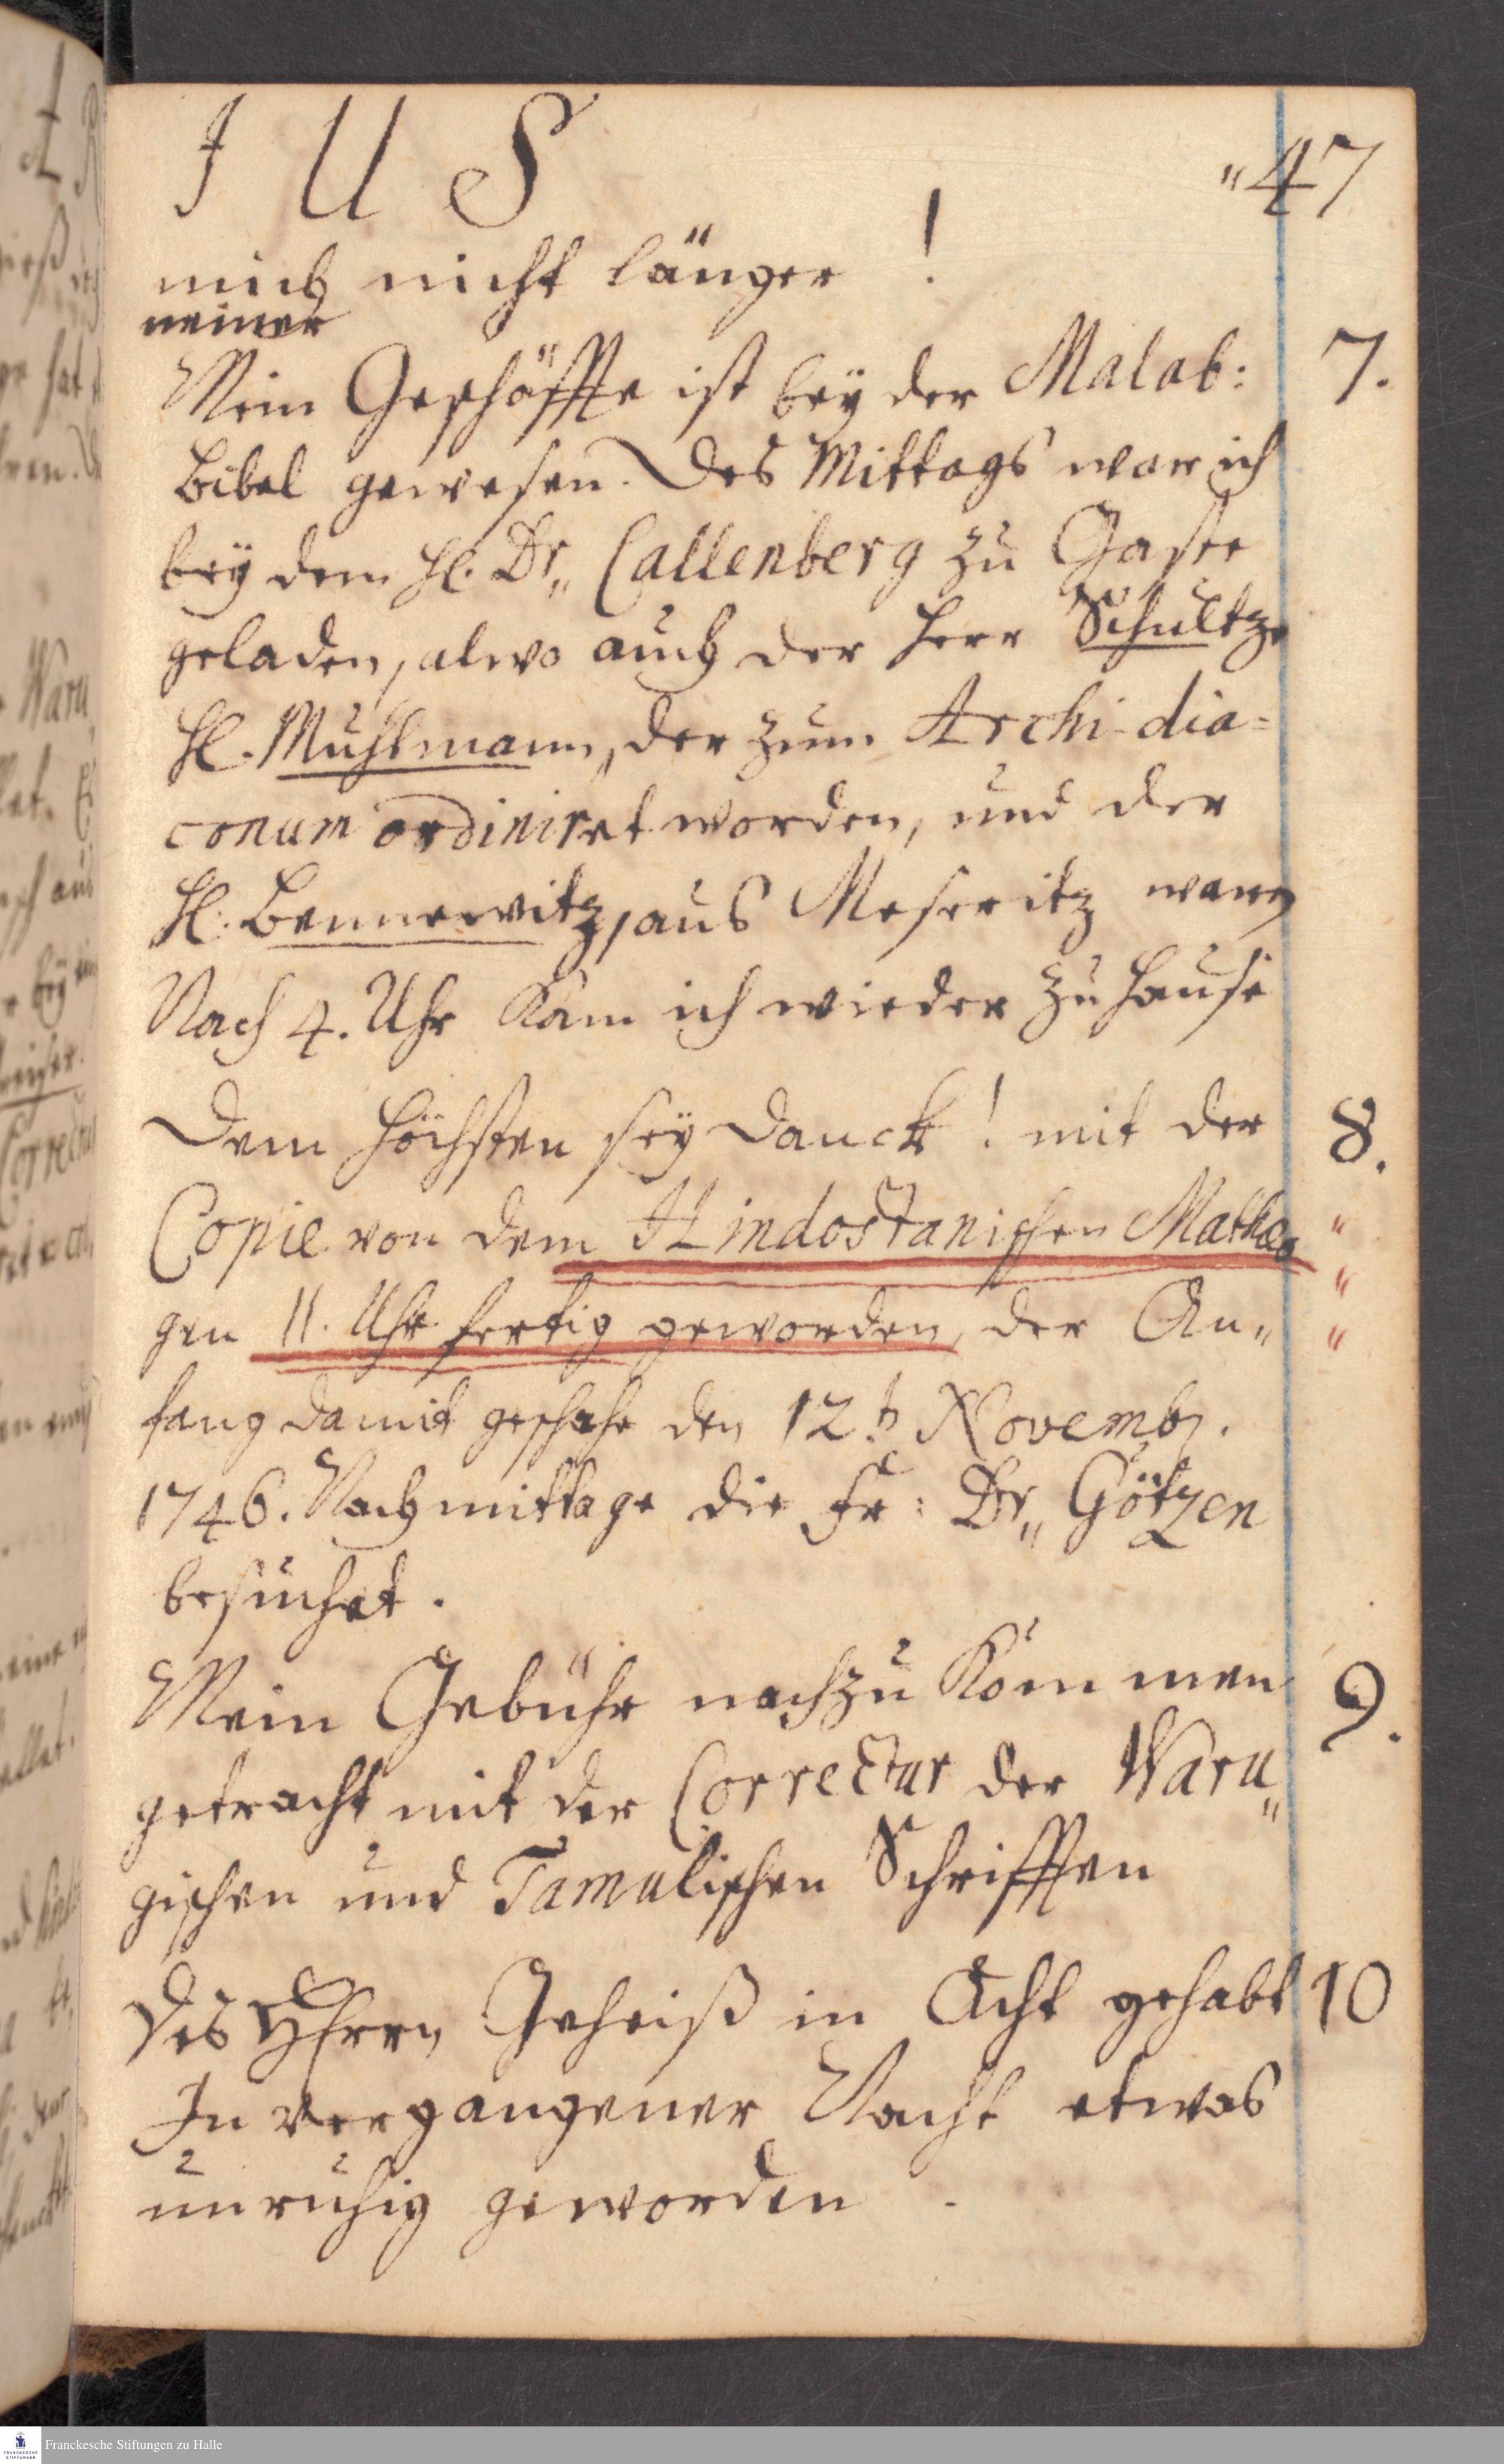 I U S
„47
mich nicht länger !
meiner
Mein Geschäffte ist bey der Malab: 7.
Bibel gewesen. Des Mittags war ich
bey dem H. Dr„ Callenberg zu Gaste
geladen, alwo auch der Herr Schultze
H. Muhlmann, der zum Archi-dia=
conum ordiniret worden, und der
H: Bennewitz, aus Meseritz waren
Nach 4. Uhr kam ich wieder zu Hause
Dem Höchsten sey Danck! mit der 8.
Copie von dem Hindostanischen Mathæo „
gen 11. Uhr fertig geworden, der An„
fang damit geschahe den 12t Novemb.
1746. Nachmittage die Fr: Dr„ Götzen
besuchet.
Mein Gebühr nachzu kommen 9.
getracht mit der Correctur der Waru„
gischen und Tamulischen Schrifften
Des HErrn Geheiß in Acht gehabt 10
In vergangener Nacht etwas
unruhig geworden .
Franckesche Stiftungen zu Halle